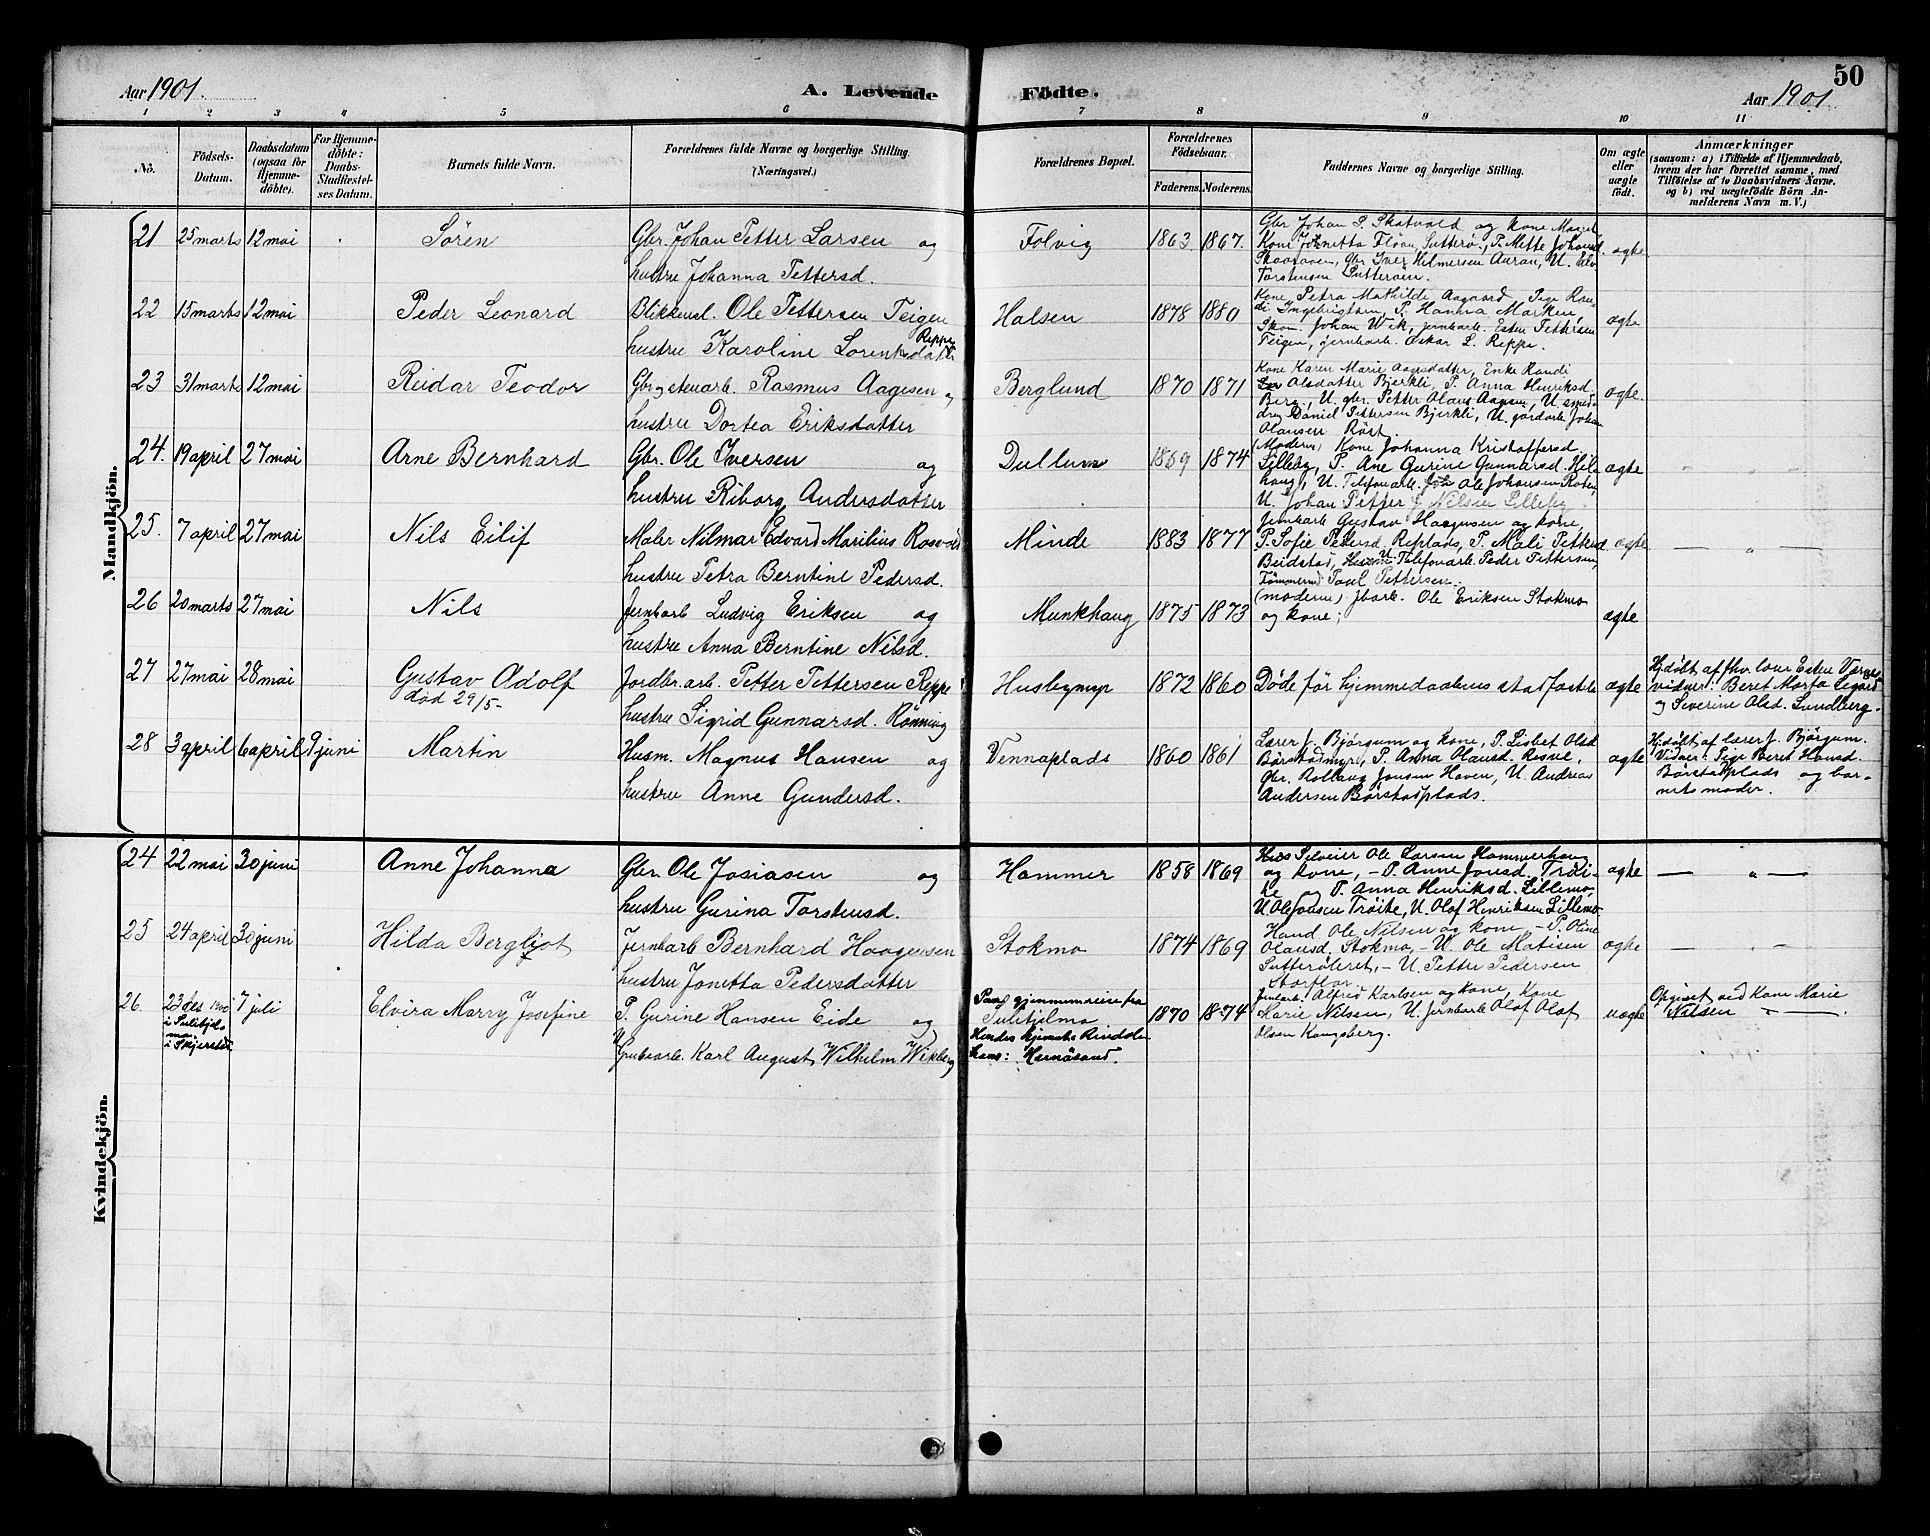 50
Aar 1901.
A. Levende Födte.
Aar 1901.
1 2 3 4 5 6 7 8 9 10 11
No.
Födsels-Datum.
Daabsdatum (ogsaa for Hjemme-döbte).
For Hjemme-döbte: Daabs-Stadfæstel-ses Datum.
Barnets fulde Navn.
Forældrenes fulde Navne og borgerlige Stilling. (Næringsvei.)
Forældrenes Bopæl.
Forældrenes Födselsaar.
Faderens. Moderens.
Faddernes Navne og borgerlige Stilling.
Om ægte eller uægte födt.
Anmærkninger (saasom: a) i Tilfælde af Hjemmedaab, hvem der har forrettet samme, med Tilföielse af to Daabsvidners Navne, og b) ved uægtefödte Börn An-melderens Navn m. V.)
Mandkjön.
21 25 marts 12 mai Sören
Gbr. Johan Petter Larsen og
hustru Johanna Pettersd.
Folvig 1863. 1867.
Gbr Johan P. Skatvold og kone
Kone Jonetta Flöan, Sutterö, P. Mette
Gbr Iver Hilmersen Auran, U.
Torstensen Sutteröen.
ægte
22 15 marts 12 mai Peder Leonard
Blikkensl. Ole Pettersen Teigen
hustru Karoline Lorentsdatter Reppe
Halsen 1878 1880
Kone Petra Mathilde Aagaard Pige
Ingebrigtsen, P. Hanna Marken,
Skom. Johan Wik, jernbarb. Esten Pettersen
Teigen, jernbarb. Oskar L. Reppe.
ægte
23 31 marts 12 mai Reidar Teodor
Gbr og stenarb. Rasmus Aagesen og
hustru Dortea Eriksdatter
Berglund 1870 1871
Kone Karen Marie Aagesdatter, Enke Randi
Olsdatter Bjerkli, P. Anna Henriksd.
Berg, U. gbr. Petter Olaus Aagesen, U.
Daniel Pettersen Bjerkli, U. gårdarb Johan
Olausen Röst
ægte.
24. 19 april 27 mai Arne Bernhard
Gbr. Ole Iversen og
hustru Riborg Andersdatter
Dullum 1869 1874
(Moderen) Kone Johanna Kristoffersd.
Lilleby, P. Ane Gurine Gunnarsd.
U. Telefonarb. Ole Johansen
U. Johan Petter Nilsen Lilleby.
ægte
25. 7 april 27 mai Nils Eilif
Maler Nilmar Edvard Marilius Rosvold
hustru Petra Berntine Pedersd.
Minde 1883 1877
Jernbarb Gustav Haagensen og kone,
P. Sofie Pedersd. Replads, P. Mali Pettersd
Beidstad, U. Telefonarb. Peder Pettersen,
Tömmermd Paul Pettersen.
ægte — " —
26 20 marts 27 mai Nils
Jernbarb Ludvig Eriksen og
hustru Anna Berntine Nilsd.
Munkhaug 1875 1873
(moderen) jbarb. Ole Eriksen Stokmo
og kone;
ægte
27 27 mai 28 mai Gustav Adolf
död 29/5-
Jordbr. arb. Petter Pettersen Reppe
hustru Sigrid Gunnarsd. Rönning
Husbymyr 1872 1860
Döde för hjemmedaabens stadfæstelse
ægte
Hj.döbt af fhv. lærer Esten
vidner: Beret Marta
og Severine Olsd. Lundberg.
28 3 april 6 april 9 juni Martin
Husm. Magnus Hansen og
hustru Anne Gundersd.
Vennaplads 1860 1861
Lærer J. Bjørgum og kone, P. Lisbet Olsd
Börstadmyr, P. Anna Olausd. Resve,
Gbr. Rollaug Jonsen Haven, U. Andreas
Andersen Börstadplads.
ægte
Hj.döbt af lærer J. Bjørgum.
Vidner: Pige Beret Hansd.
Börstadplads og bar-
nets moder.
Kvindekjön.
24 22 mai 30 juni Anne Johanna
Gbr. Ole Josiasen og
hustru Gurina Torstensd.
Hammer 1858 1869
Ole Larsen Hammerhaug
og kone, – P. Anne Jonsd. Tröi-
te og P. Anna Henriksd. Lillemo,
U. Ole Jonsen Tröite, U. Olof Henriksen Lillemo
ægte — " —
25 24 april 30 juni Hilda Bergljot
Jernbarb Bernhard Haagensen
hustru Jonetta Pedersdatter
Stokmo 1874 1869
Hand. Ole Nilsen og kone, – P. Oline
Olausd. Stokmo, – U. Ole Matisen
Sutteröleret, – U. Petter Pedersen
Storflor
ægte — " —
26. 23 des 1900 7 juli Elvira Marry Josefine
i Sulitjelma i Skjerstad
P. Gurine Hansen Eide og
U. Grubearb. Karl August Wilhelm Wikberg
Paa gjennemreise fra
Sulitjelma
Hendes hjemst: Rindalen
hans: Hernösand.
1870 1874
Jernbarb. Alfred Karlsen og kone, Kone
Marie Nilsen, U. jernbarb Olof Olof
Olsen Kongsberg.
uægte
Opgivet ved Kone Marie
Nilsen — " —